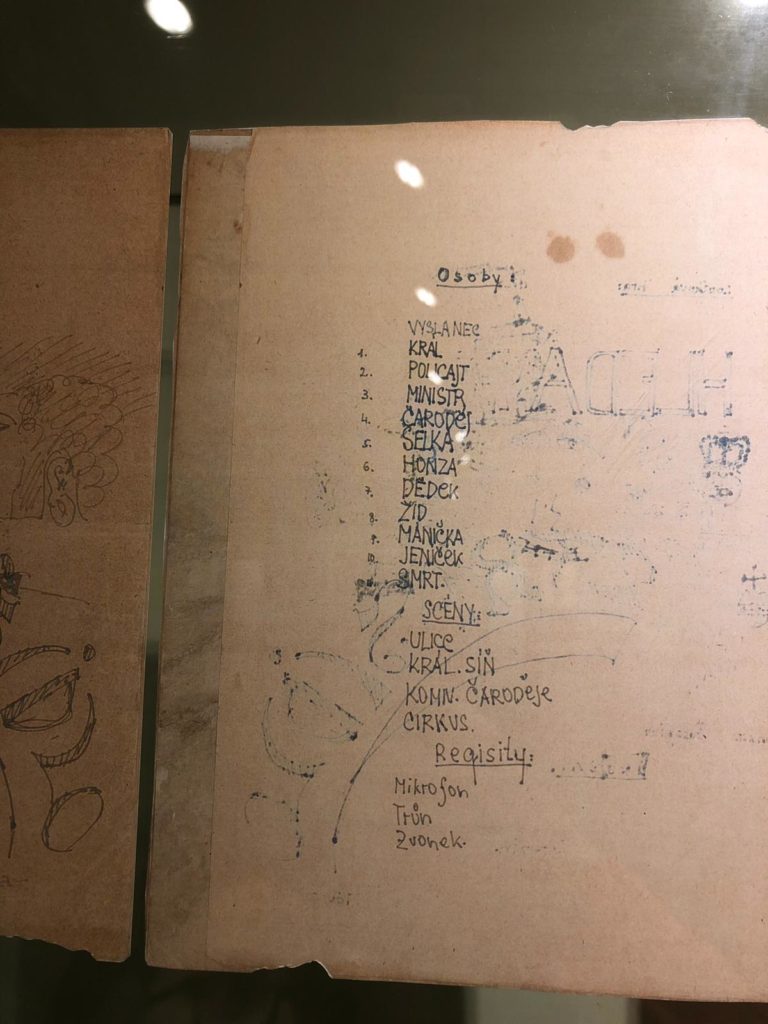 Osoby:
VYSLANEC
1. KRÁL
2. POLICAJT
3. MINISTR
4. ČARODĚJ
5. SELKA
6. HONZA
7. DĚDEK
8. ŽID
9. MÁNIČKA
10. JENIČEK
SMRT.
SCÉNY:
ULICE
KRÁL. SÍŇ
KOMN. ČARODĚJE
CIRKUS.
Regisity:
Mikrofon
Trůn
Zvonek.